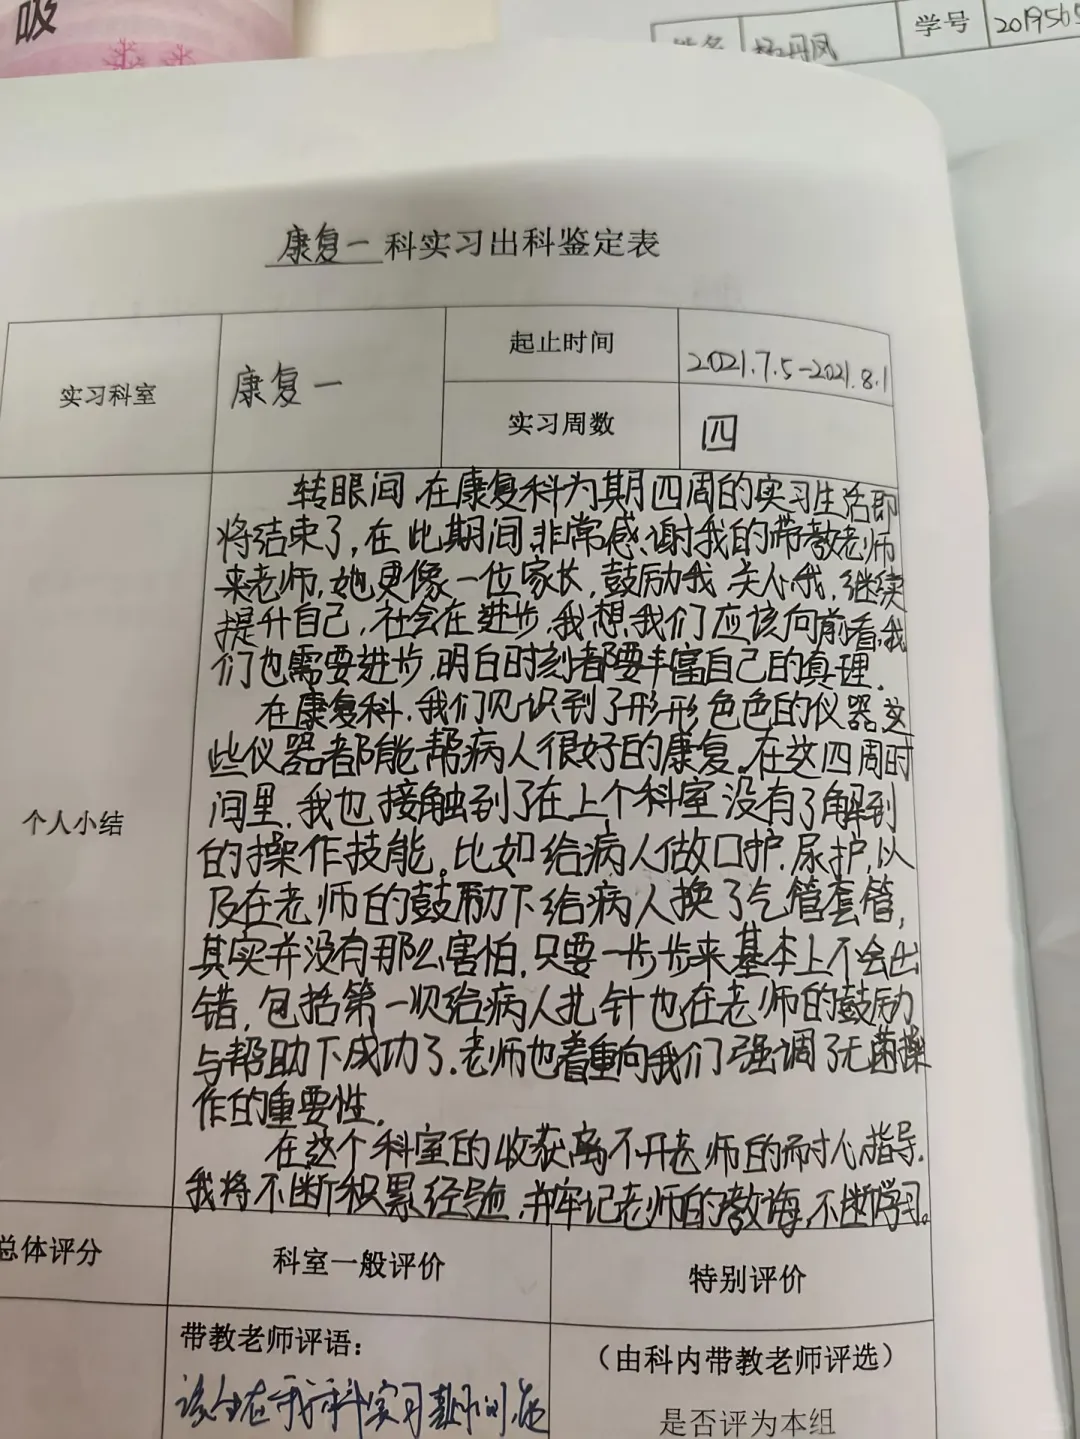 吸
姓名 杨丹凤 学号 2019565
康复一科实习出科鉴定表
实习科室 康复一 起止时间 2021.7.5-2021.8.1
实习周数 四
个人小结
转眼间,在康复科为期四周的实习生活即
将结束了,在此期间,非常感谢我的带教老师
来老师,她更像一位家长,鼓励我,关心我,继续
提升自己,社会在进步,我想,我们应该向前看,我
们也需要进步,明白时刻都要丰富自己的真理.
在康复科,我们见识到了形形色色的仪器,这
些仪器都能帮病人很好的康复。在这四周时
间里,我也接触到了在上个科室没有了解到
的操作技能。比如给病人做口护,尿护,以
及在老师的鼓励下给病人换了气管套管,
其实并没有那么害怕,只要一步步来基本上不会出
错,包括第一次给病人扎针也在老师的鼓励
与帮助下成功了.老师也着重向我们强调了无菌操
作的重要性.
在这个科室的收获离不开老师的耐心指导.
我将不断积累经验,并牢记老师的教诲,不断学习。
总体评分 科室一般评价 特别评价
带教老师评语:
该生在我科实习期间,能
(由科内带教老师评选)
是否评为本组